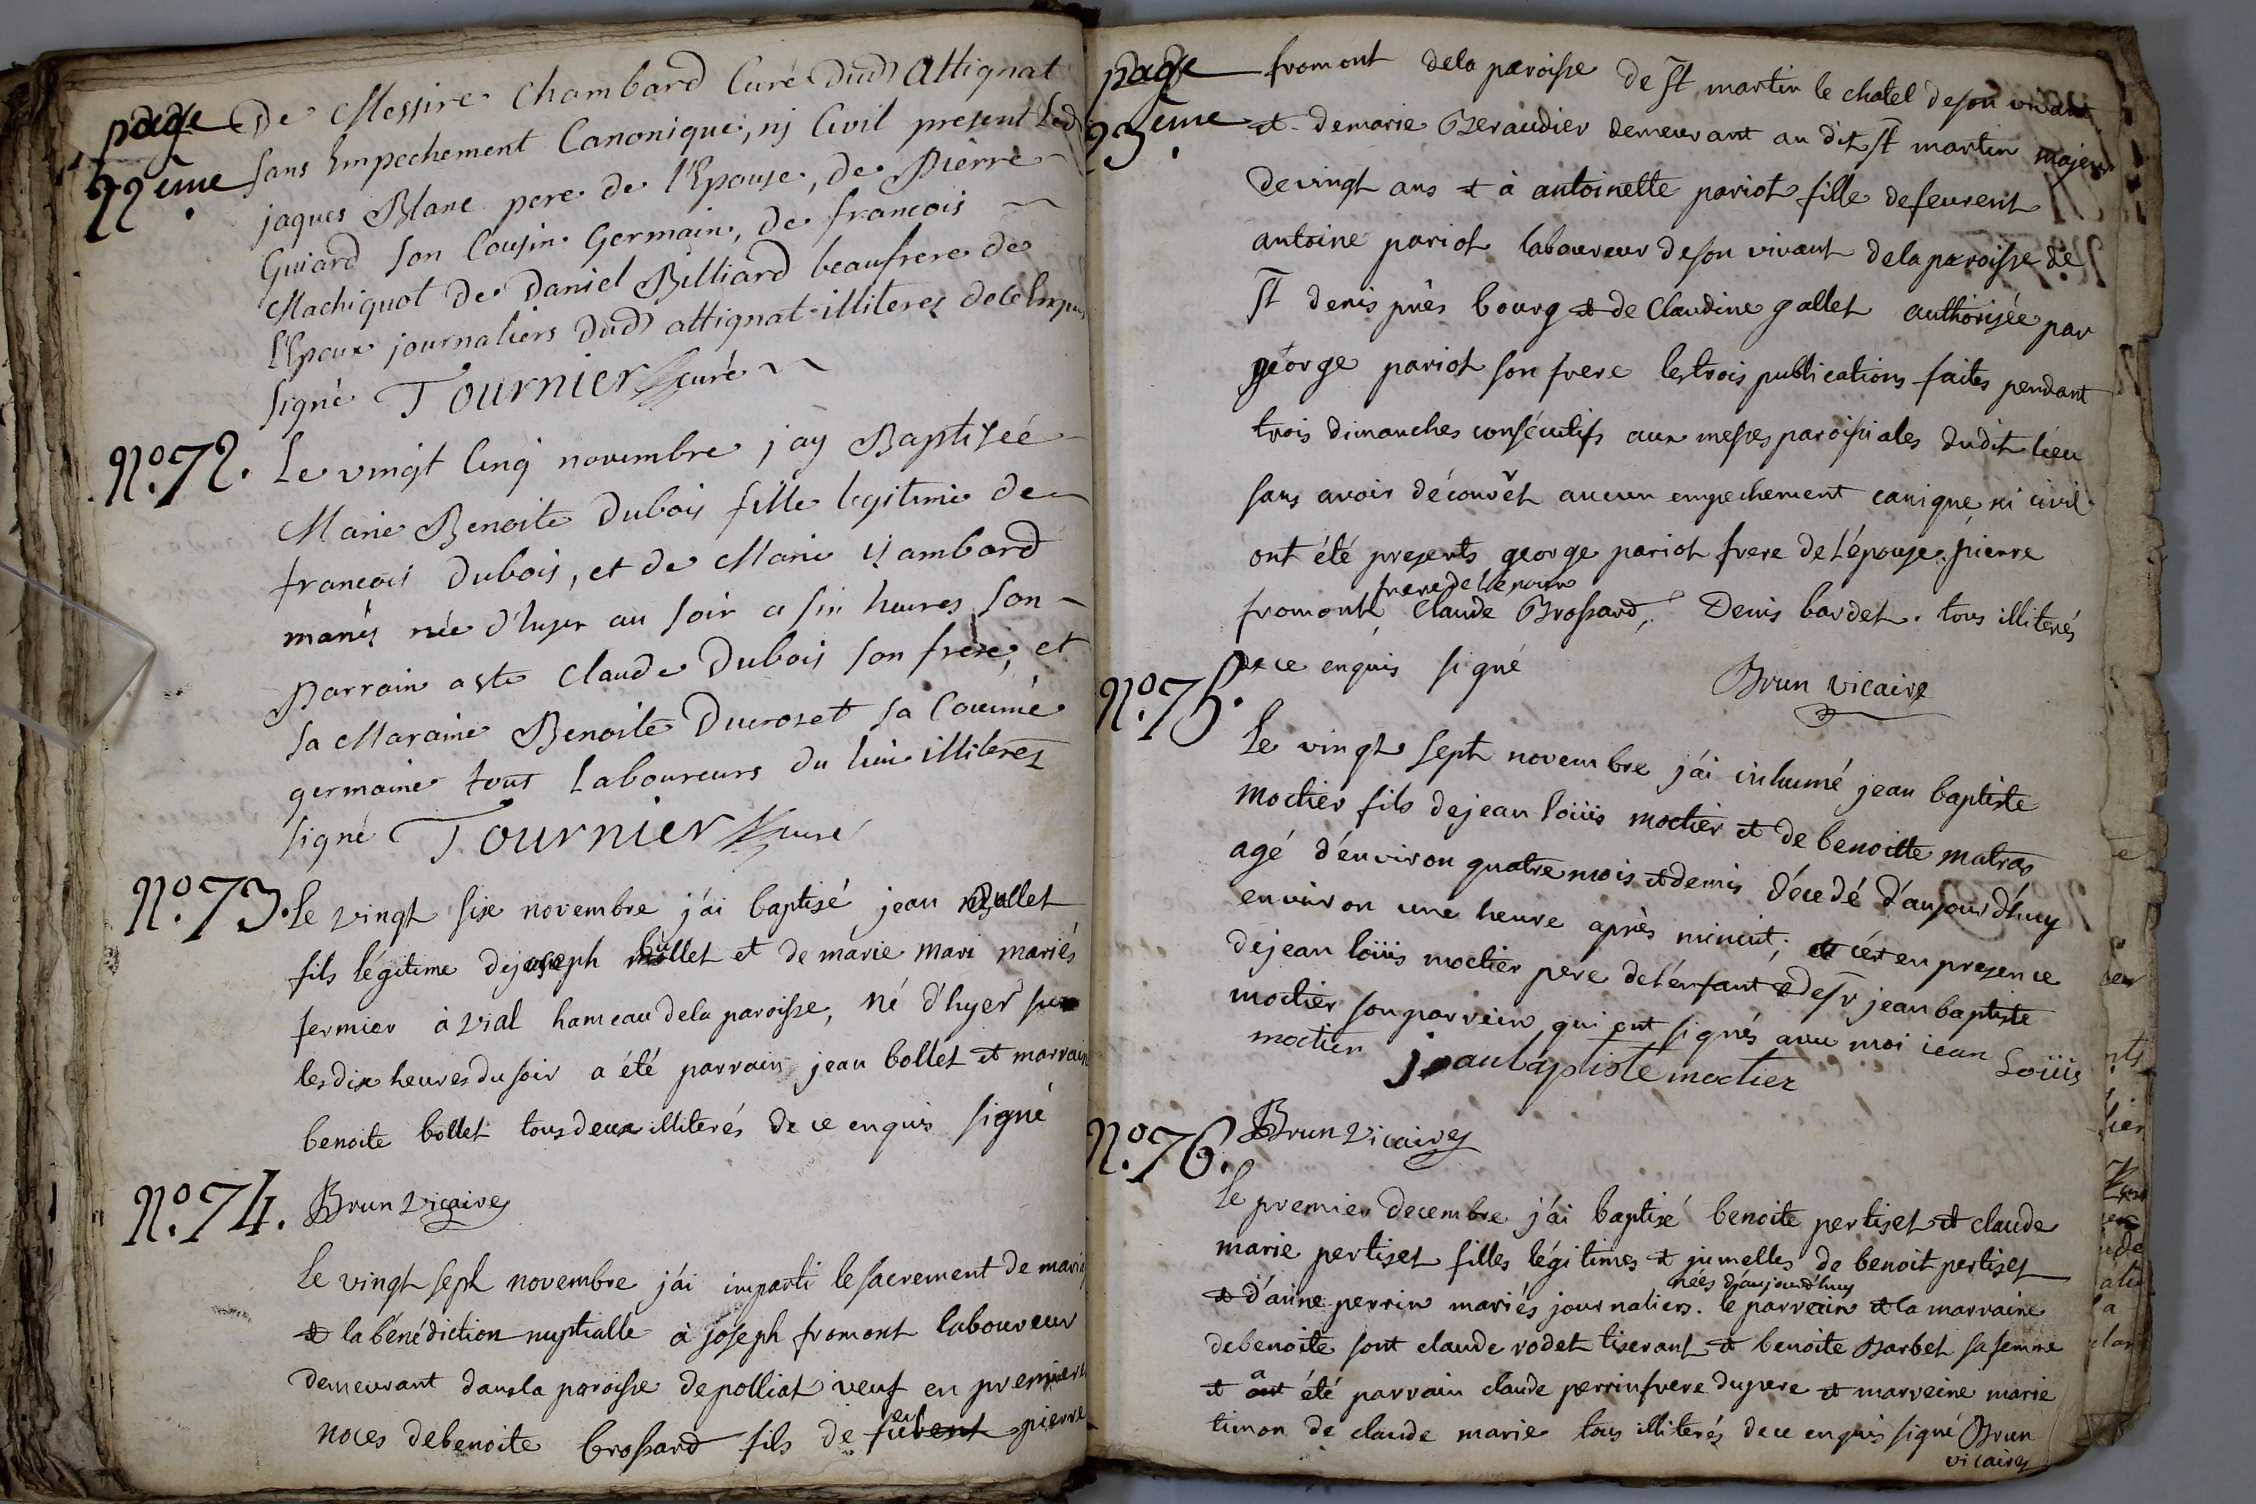 page 22eme
De Messire Chambard Curé Dud Attignat
sans Empechement Canonique, nj Civil present Led
jaques Blanc pere de l'Epouse, de Pierre
Guiard son Cousin Germain, de francois
Machiquot de Daniel Billiard beaufrere de
l'Epoux journaliers dud attignat illiteres de ce Enquis
signé Tournier curé
N.o 72.
Le vingt Cinq novembre j'ay Baptiseé
Marie Benoite Dubois fille legitime de
francois Dubois, et de Marie Chambard
mariés née d'hyer au soir a six heures son
Parrain a ete Claude Dubois son frere, et
sa Maraine Benoite Ducroset sa Cousine
germaine tous Laboureurs du lieu illiteres
signé Tournier curé
N.o 73.
le vingt six novembre j'ai baptisé jean Bollet
fils légitime de joseph bollet et de marie mari mariés
fermier à vial hameau de la paroisse, né d'hyer sur
les dix heures du soir a été parrain jean bollet et marraine
benoite bollet tous deux illiterés de ce enquis signé
Brun vicaire
N.o 74.
Le vingt sept novembre j'ai imparti le sacrement de mariage
et la bénédiction nuptialle à joseph fromont laboureur
demeurant dans la paroisse de polliat veuf en premiere
noces de benoite brossard fils de feu pierre
page 23eme
fromont de la paroisse de St martin le chatel de son vivant
et de marie Beraudier demeurant au dit St martin majeur
de vingt ans et à antoinette pariot fille de feu
antoine pariot laboureur de son vivant de la paroisse de
St denis près bourg et de Claudine gallet authorisée par
géorge pariot son frere les trois publications faites pendant
trois dimanches consécutifs aux messes paroissiales du dit lieu
sans avoir découvert aucun empechement canique ni civil
ont été presents george pariot frere de l'épouse. pierre
fromont frere de l'epoux Claude Brossard, Denis bardet. tous illiterés
de ce enquis signé Brun vicaire
N.o 75.
Le vingt sept novembre j'ai inhumé jean baptiste
moctier fils de jean loüis moctier et de benoitte matras
agé d'environ quatre mois et demis décedé d'aujourd'huy
environ une heure après minuit, et ce en presence
de jean loüis moctier pere de l'enfant et de sr jean baptiste
moctier son parrein qui ont signés avec moi iean Loüis
moctier jeanbaptiste moctier
Brun vicaire
N.o 76.
Le premier decembre j'ai baptisé benoite pertiset et claude
marie pertiset filles légitimes et jumelles de benoit pertiset
et d'anne perrin mariés journaliers. nées d'aujourd'huy le parrein et la marraine
de benoite sont claude rodet tiserant et benoite Barbet sa femme
et a été parrain claude perrin frere du pere et marreine marie
timon de claude marie tous illiterés de ce enquis signé Brun
vicaire